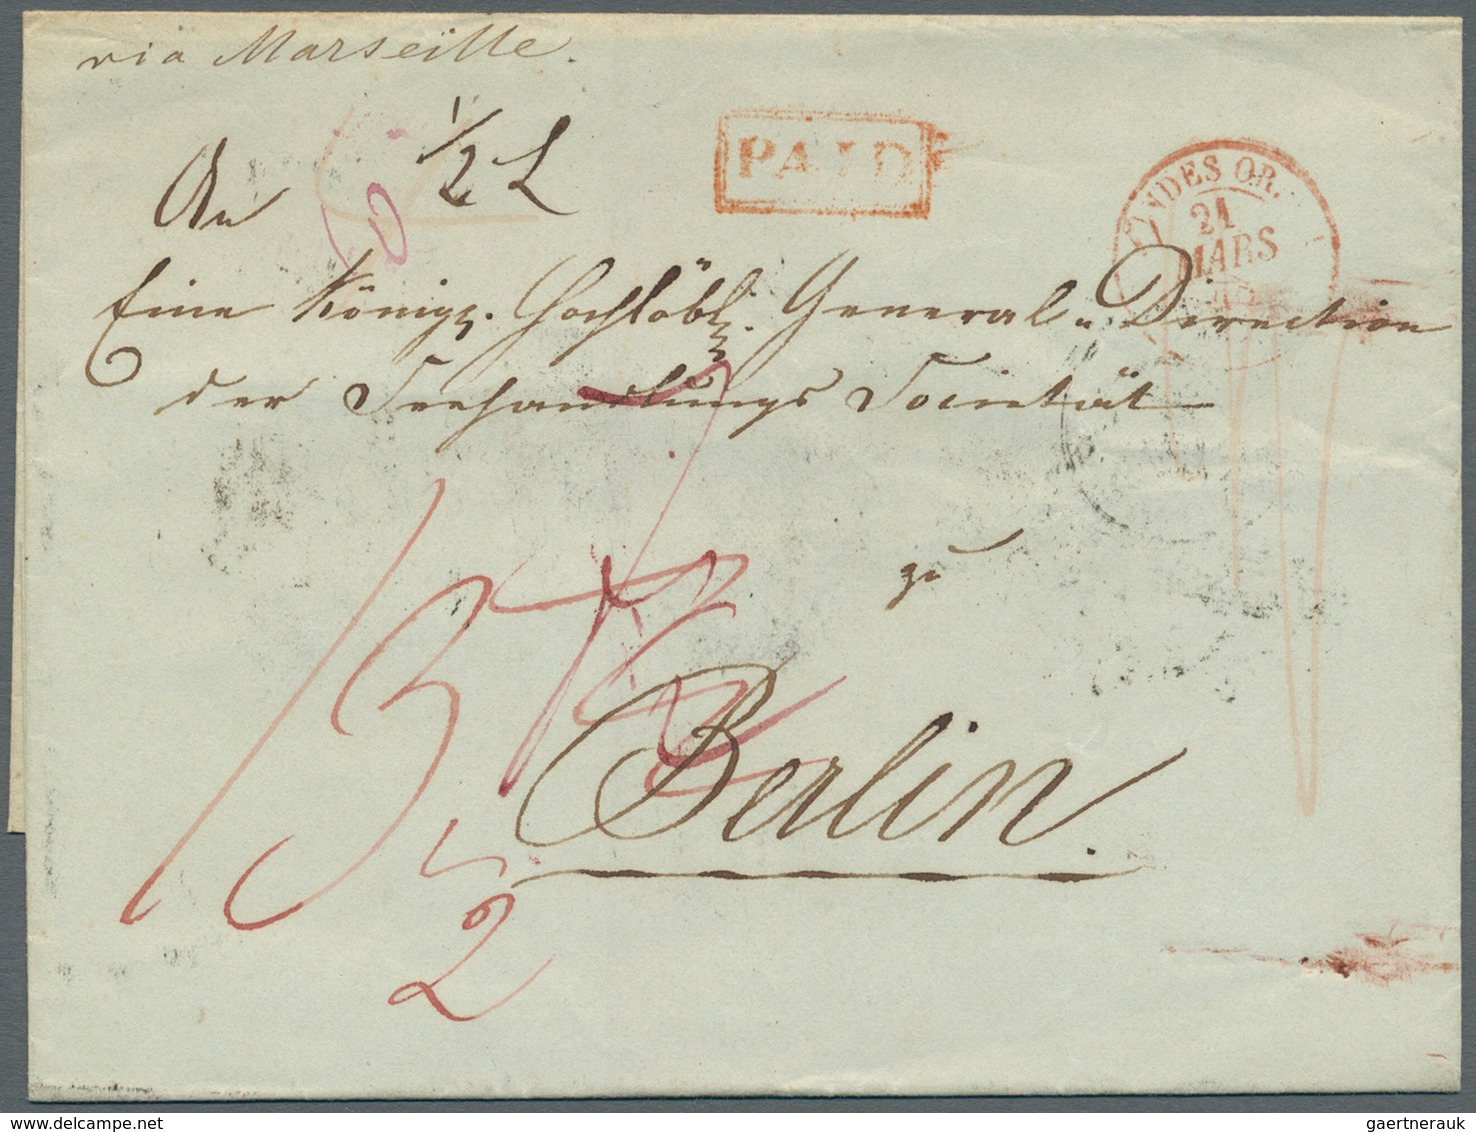 via Marseille.
1/2 L
PAID
An
INDES OR.
21
MARS
Eine Königl. Hochlöbl. General-Direction
der Seehandlungs Societät
zu
Berlin.
2
gaertnerauk